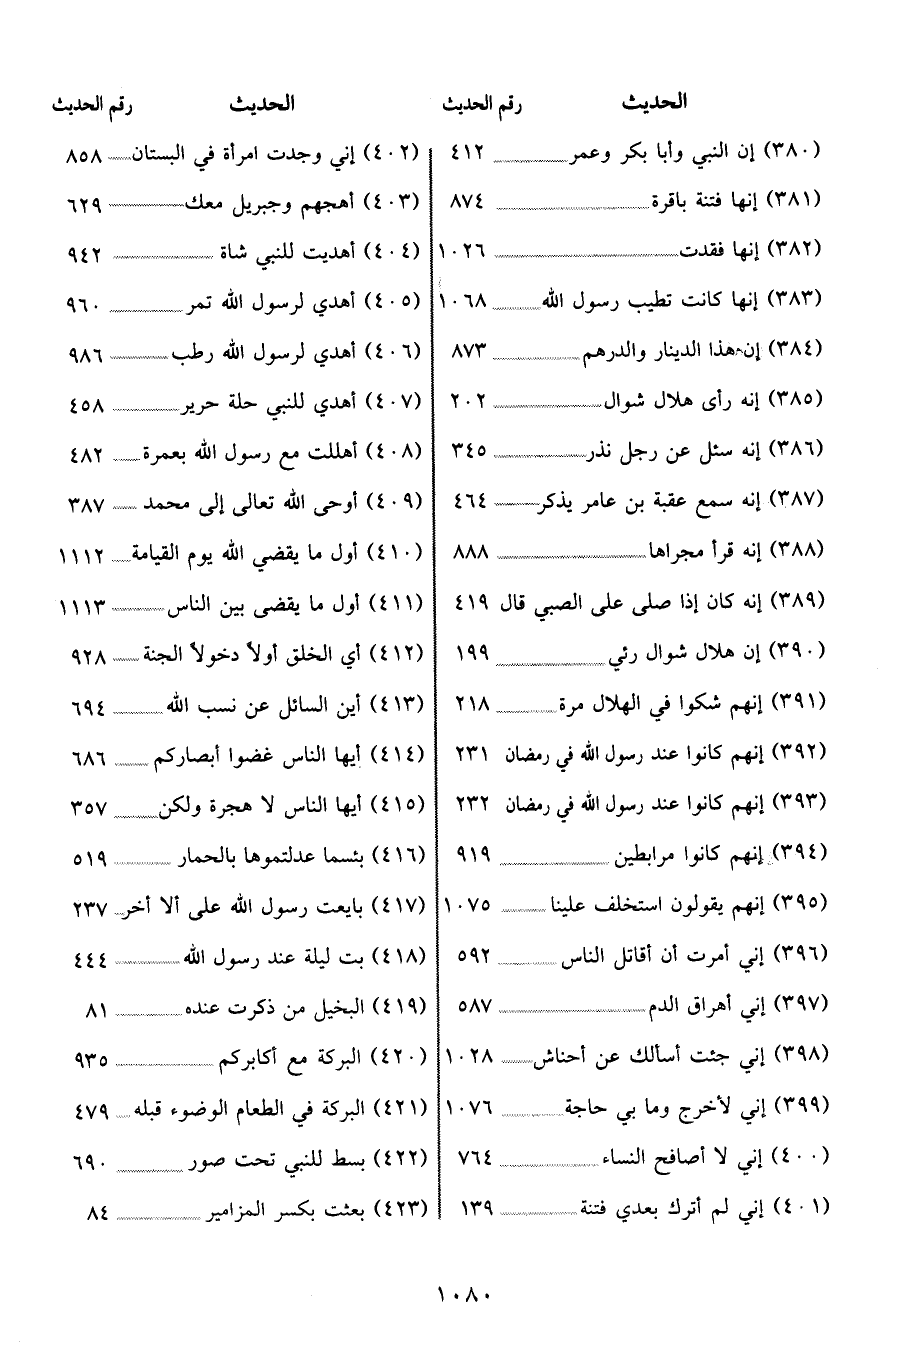 الحديث رقم الحديث
(٣٨٠) إن النبي وأبا بكر وعمر ٤١٢
(٣٨١) إنها فتنة باقرة ٨٧٤
(٣٨٢) إنها فقدت ١٠٢٦
(٣٨٣) إنها كانت تطيب رسول الله ١٠٦٨
(٣٨٤) إن هذا الدينار والدرهم ٨٧٣
(٣٨٥) إنه رأى هلال شوال ٢٠٢
(٣٨٦) إنه سئل عن رجل نذر ٣٤٥
(٣٨٧) إنه سمع عقبة بن عامر يذكر ٤٦٤
(٣٨٨) إنه قرأ مجراها ٨٨٨
(٣٨٩) إنه كان إذا صلى على الصبي قال ٤١٩
(٣٩٠) إن هلال شوال رئي ١٩٩
(٣٩١) إنهم شكوا في الهلال مرة ٢١٨
(٣٩٢) إنهم كانوا عند رسول الله في رمضان ٢٣١
(٣٩٣) إنهم كانوا عند رسول الله في رمضان ٢٣٢
(٣٩٤) إنهم كانوا مرابطين ٩١٩
(٣٩٥) إنهم يقولون استخلف علينا ١٠٧٥
(٣٩٦) إني أمرت أن أقاتل الناس ٥٩٢
(٣٩٧) إني أهراق الدم ٥٨٧
(٣٩٨) إني جئت أسألك عن أحناش ١٠٢٨
(٣٩٩) إني لأخرج وما بي حاجة ١٠٧٦
(٤٠٠) إني لا أصافح النساء ٧٦٤
(٤٠١) إني لم أترك بعدي فتنة ١٣٩
الحديث رقم الحديث
(٤٠٢) إني وجدت امرأة في البستان ٨٥٨
(٤٠٣) أهجهم وجبريل معك ٦٢٩
(٤٠٤) أهديت للنبي شاة ٩٤٢
(٤٠٥) أهدي لرسول الله تمر ٩٦٠
(٤٠٦) أهدي لرسول الله رطب ٩٨٦
(٤٠٧) أهدي للنبي حلة حرير ٤٥٨
(٤٠٨) أهللت مع رسول الله بعمرة ٤٨٢
(٤٠٩) أوحى الله تعالى إلى محمد ٣٨٧
(٤١٠) أول ما يقضي الله يوم القيامة ١١١٢
(٤١١) أول ما يقضى بين الناس ١١١٣
(٤١٢) أي الخلق أولاً دخولاً الجنة ٩٢٨
(٤١٣) أين السائل عن نسب الله ٦٩٤
(٤١٤) أيها الناس غضوا أبصاركم ٦٨٦
(٤١٥) أيها الناس لا هجرة ولكن ٣٥٧
(٤١٦) بئسما عدلتموها بالحمار ٥١٩
(٤١٧) بايعت رسول الله على ألا أخر ٢٣٧
(٤١٨) بت ليلة عند رسول الله ٤٤٤
(٤١٩) البخيل من ذكرت عنده ٨١
(٤٢٠) البركة مع أكابركم ٩٣٥
(٤٢١) البركة في الطعام الوضوء قبله ٤٧٩
(٤٢٢) بسط للنبي تحت صور ٦٩٠
(٤٢٣) بعثت بكسر المزامير ٨٤
١٠٨٠